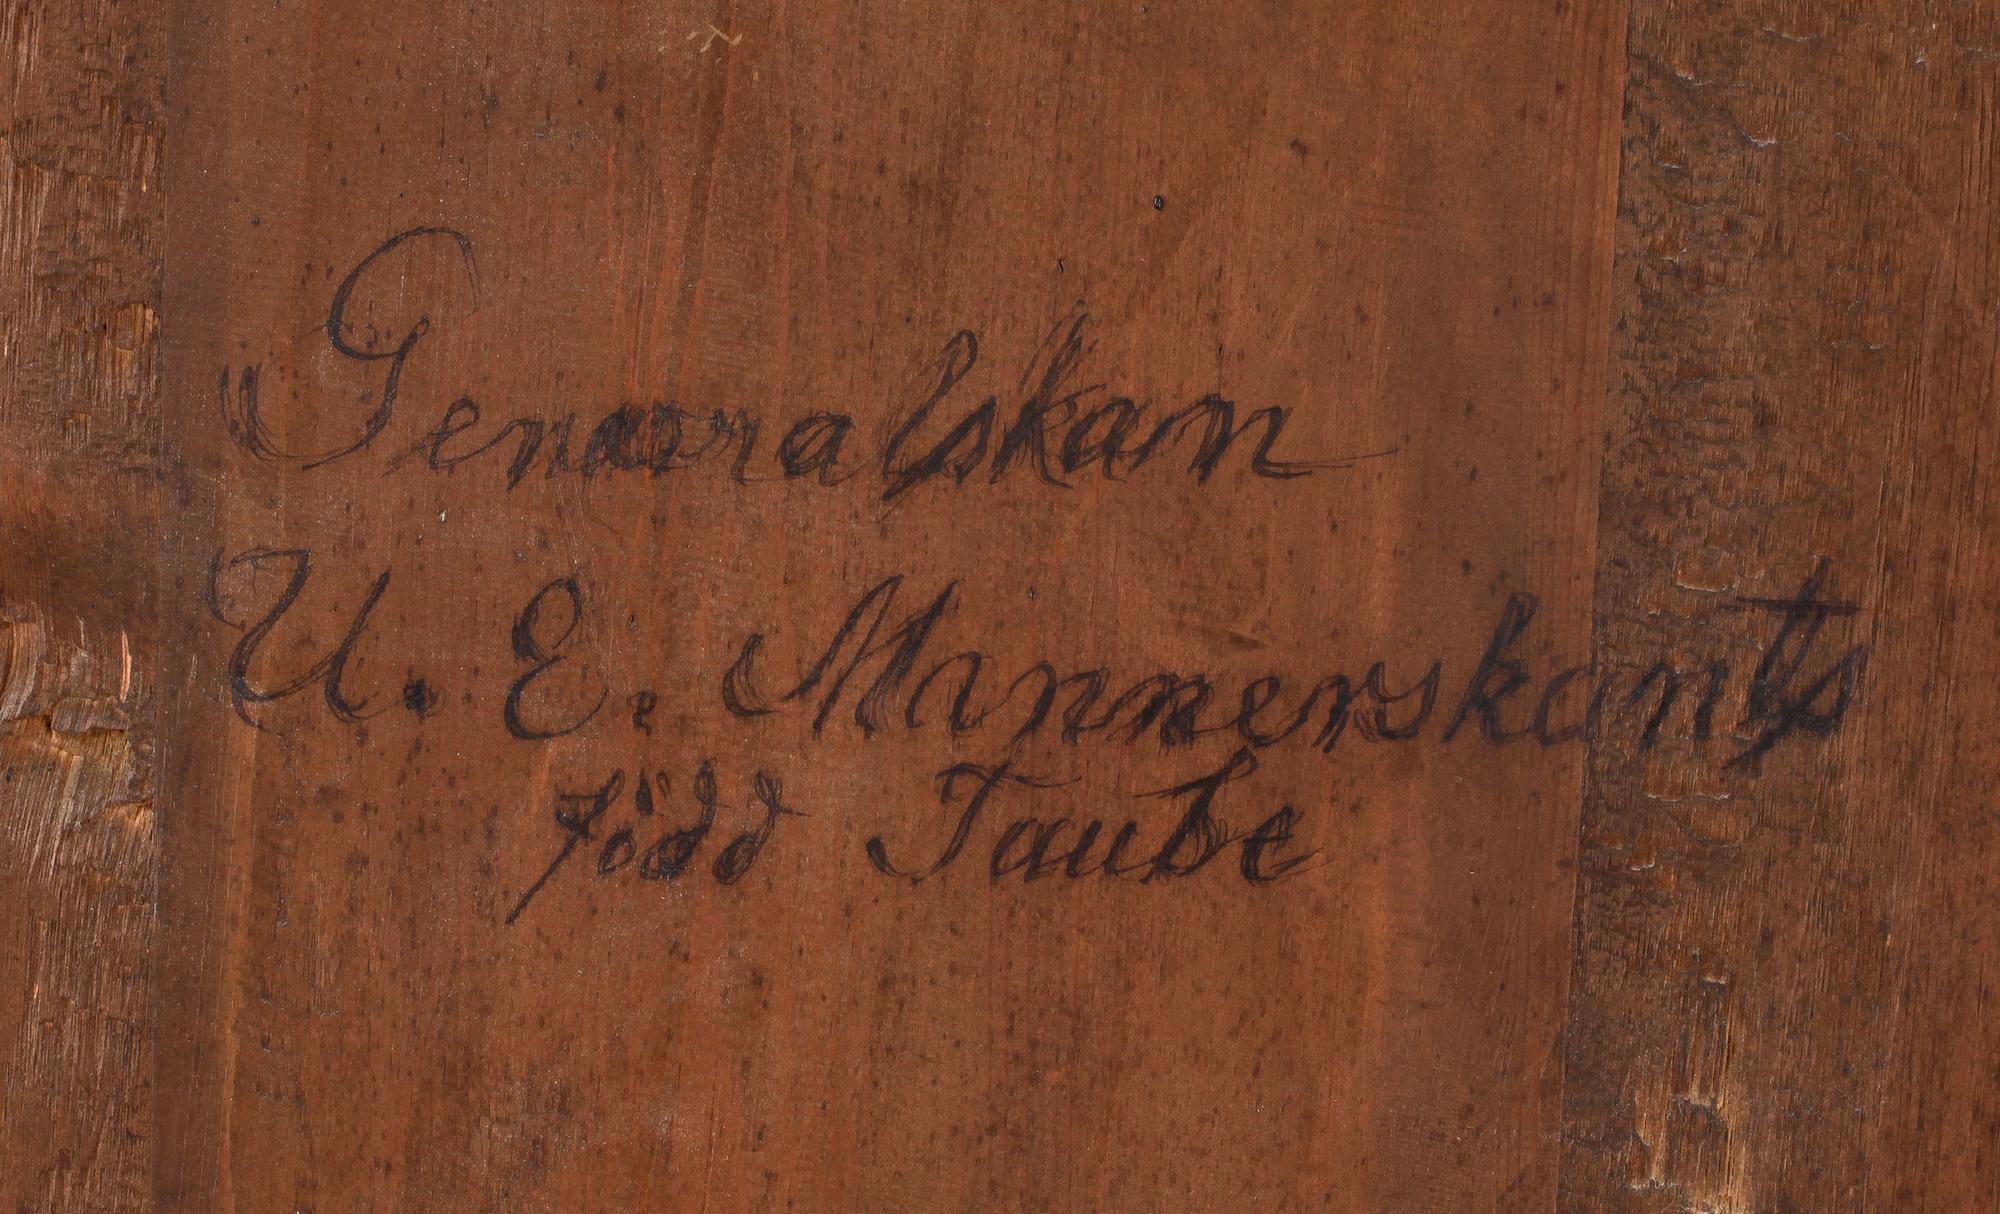 Generalskan
U. E. Minnerskants
född Taube